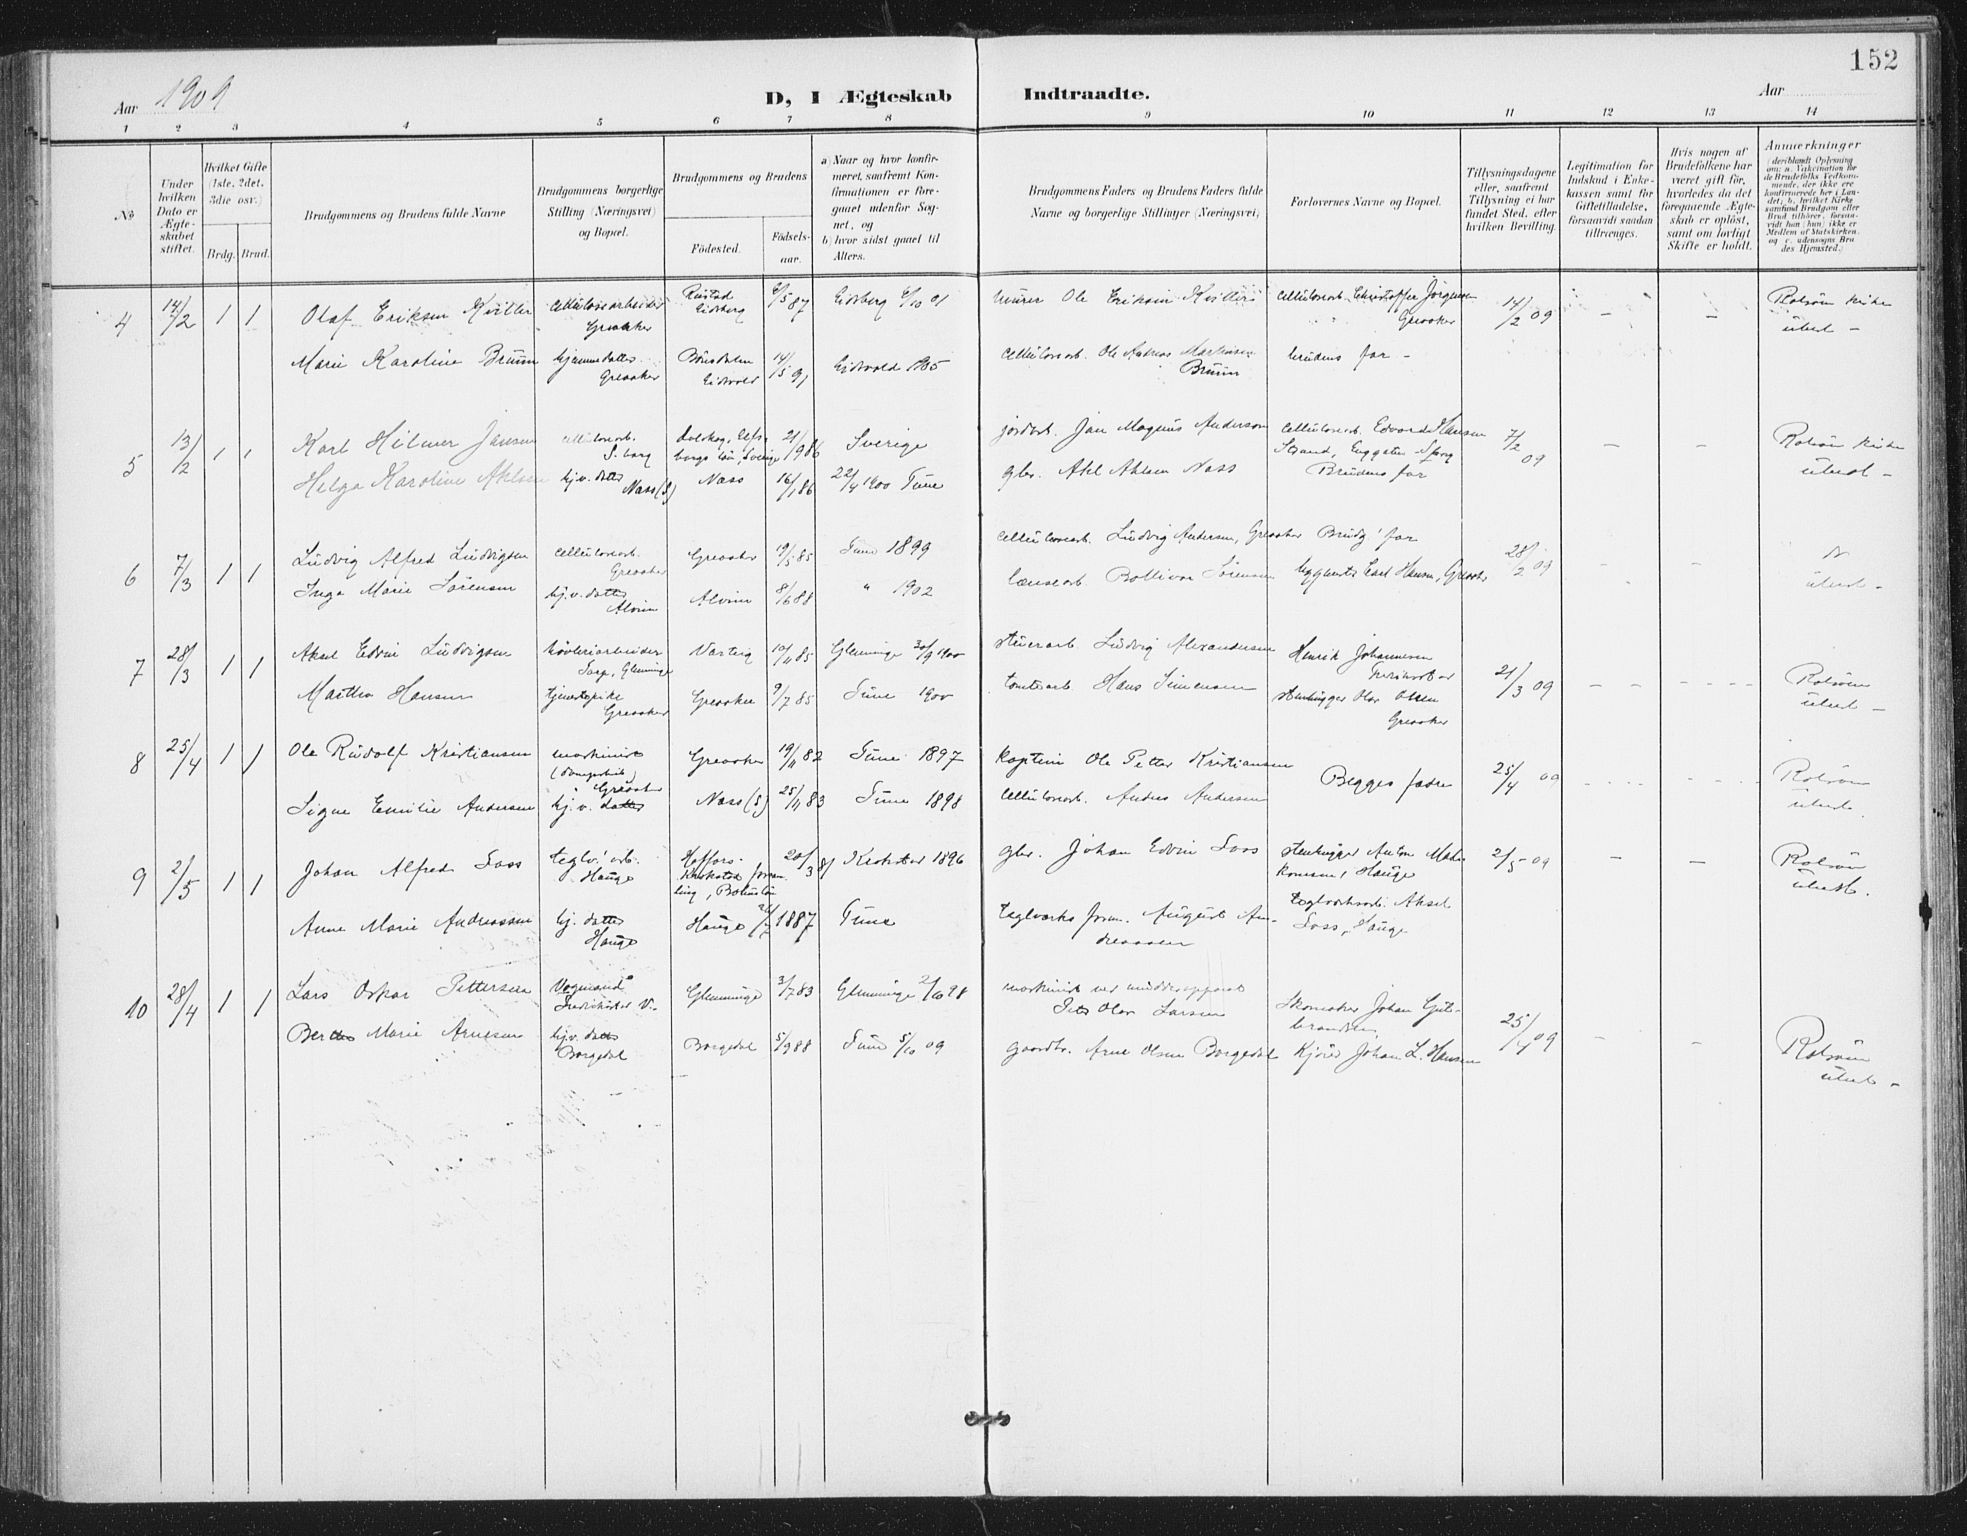 152
Aar 1909 D, I Ægteskab Indtraadte. Aar
1 2 3 4 5 6 7 8 9 10 11 12 13 14
No
Under hvilken Dato er Ægteskabet stiftet.
Hvilket Gifte (1ste, 2det, 3die osv.)
Brdg. Brud.
Brudgommens og Brudens fulde Navne
Brudgommens borgerlige Stilling (Næringsvei) og Bopæl.
Brudgommens og Brudens
Fødested.
Fødselsaar.
a) Naar og hvor konfirmeret, saafremt Konfirmationen er foregaaet udenfor Sognet, og
b) hvor sidst gaaet til Alters.
Brudgommens Faders og Brudens Faders fulde Navne og borgerlige Stillinger (Næringsvei)
Forlovernes Navne og Bopæl.
Tillysningsdagene eller, saafremt Tillysning ei har fundet Sted, efter hvilken Bevilling.
Legitimation for Indskud i Enkekassen samt for Giftetilladelse, forsaavidt saadan tiltrænges.
Hvis nogen af Brudefolkene har været gift før, hvorledes da det foregaaende Ægteskab er opløst, samt om lovligt Skifte er holdt.
Anmerkninger
(deriblandt Oplysning om: a. Vakcination for de Brudefolks Vedkommende, der ikke ere konfirmerede her i Landet; b. hvilket Kirkesamfund Brudgom eller Brud tilhører, forsaavidt han (hun) ikke er Medlem af Statskirken, og c. udensogns Brudes Hjemsted.)
4 14/2 1 1 Olaf Eriksen Kvitler cellulosearbeider Greaaker Rustad Eidsberg 6/5 87 Eidsberg 6/10 01 murer Ole Eriksen Kvitler cellulosearb. Christoffer Jörgensen Greaaker 14/2 09 - - Rolsöen kirke
Marie Karoline Bruun hjemmedatter Greaaker Eidsvold 14/5 91 Eidsvold 1905 cellulosearb. Ole Andreas Martinsen Bruun brudens far -
5 13/2 1 1 Karl Hilmer Jansen cellulosearb. S.borg Elfsborgs län, Sverige 21/9 86 Sverige jordarb. Jan Magnus Anderson cellulosearb. Edvard Hansen Strand 7/2 09 - - Rolsön kirke
Helga Karoline Akelsen hj.v. datter Næss (S) Næss 16/1 86 22/4 1900 Tune gbr. Akl Aklsen Næss Brudens far
6 7/3 1 1 Ludvig Alfred Ludvigsen cellulosearb. Greaaker Greaaker 19/5 85 Tune 1899 cellulosearb. Ludvig Andersen, Greaaker Brudg' far 28/2 09 - -
Inga Marie Sörensen hj.v. datter Alvim Alvim 8/6 88 " 1902 lænsearb Bollivar Sörensen Carl Hansen, Greaaker
7 28/3 1 1 Aksel Edvin Ludvigsen höveriarbeider Sarp, Glemminge Varteig 10/11 85 Glemminge 30/9 1900 stuerarb Ludvig Alexandersen Henrik Johannesen 21/3 09 - - Rolsöen
Martha Hansen tjenestepike Greaaker Greaaker 9/7 85 Tune 1900 tomtearb Hans Simensen stenhugger Olav Olsen Greaaker
8 25/4 1 1 Ole Rudolf Kristiansen maskinist Greaaker Greaaker 19/11 82 Tune 1897 kaptein Ole Petter Kristiansen Begges fædre 25/4 09 Rolsöen
Signe Emilie Andersen hj.v. datter Næss (S) 25/11 83 Tune 1898 cellulosearb. Anders Andersen
9 2/5 1 1 Johan Alfred Soss teglv.' arb. Hauge 20/3 81 Krokstad 1896 gbr. Johan Edvin Soss stenhugger Anton Hauge 2/5 09 - - Rolsön
Anne Marie Andreassen hj. datter Hauge Hauge 1887 Tune teglverks form. August Andreassen teglverksarb. Aksel Soss, Hauge
10 28/4 1 1 Lars Oskar Pettersen Vognmand Glemminge 3/7 83 Glemminge 2/10 98 maskinist ved mudderapparat Olav Larsen Skomaker Johan Gulbrandsen 25/4 09 - - Rolsöen
Berthe Marie Arnesen hj.v. datter Borgedal Borgedal 5/9 88 Tune 5/10 09 gaardbr. Arne Olsen Borgedal Johan L. Hansen